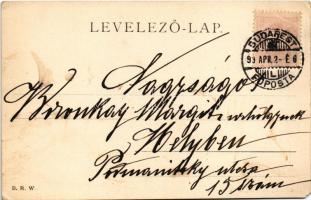 LEVELEZŐ-LAP.
BUDAPEST
99 APR. 2 - É 6
FŐPOSTA
Nagyságos
Boronkay Margit úrhölgynek
Helyben
Podmaniczky utcza
15 szám
B. R. W.